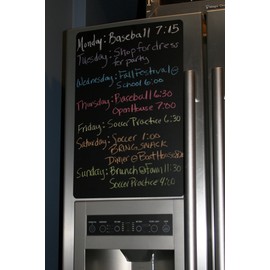 Monday: Baseball 7:15
Tuesday: Shop for dress
for party
Wednesday: Fall Festival @
School 6:00
Thursday: Baseball 6:30
Open House 7:00
Friday: Soccer Practice 6:30
Saturday: Soccer 1:00
BRING SNACK
Dinner @ Boat House
Sunday: Brunch @ Fam 11:30
Soccer Practice 4:00